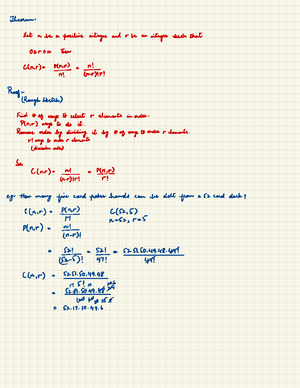 Theorem:
Let n be a positive integer and r be an integer such that
0≤r≤n Then
C(n,r) = P(n,r)/n! = n!/(n-r)!r!
Proof -
(Rough Sketch)
Find # of ways to select r elements in order.
P(n,r) ways to do it.
Remove order by dividing it by # of ways to order r elements.
r! ways to order r elements
(division rule)
So,
C(n,r) = n!/(n-r)!r! = P(n,r)/r!
eg: How many five card poker hands can be dealt from a 52 card deck?
C(n,r) = P(n,r)/r! C(52,5)
P(n,r) = n!/(n-r)! n=52, r=5
= 52!/(52-5)! = 52!/47! = 52.51.50.49.48.47!/47!
C(n,r) = 52.51.50.49.48/5!
= 52.51.50.49.48
= 52.17.10.49.6